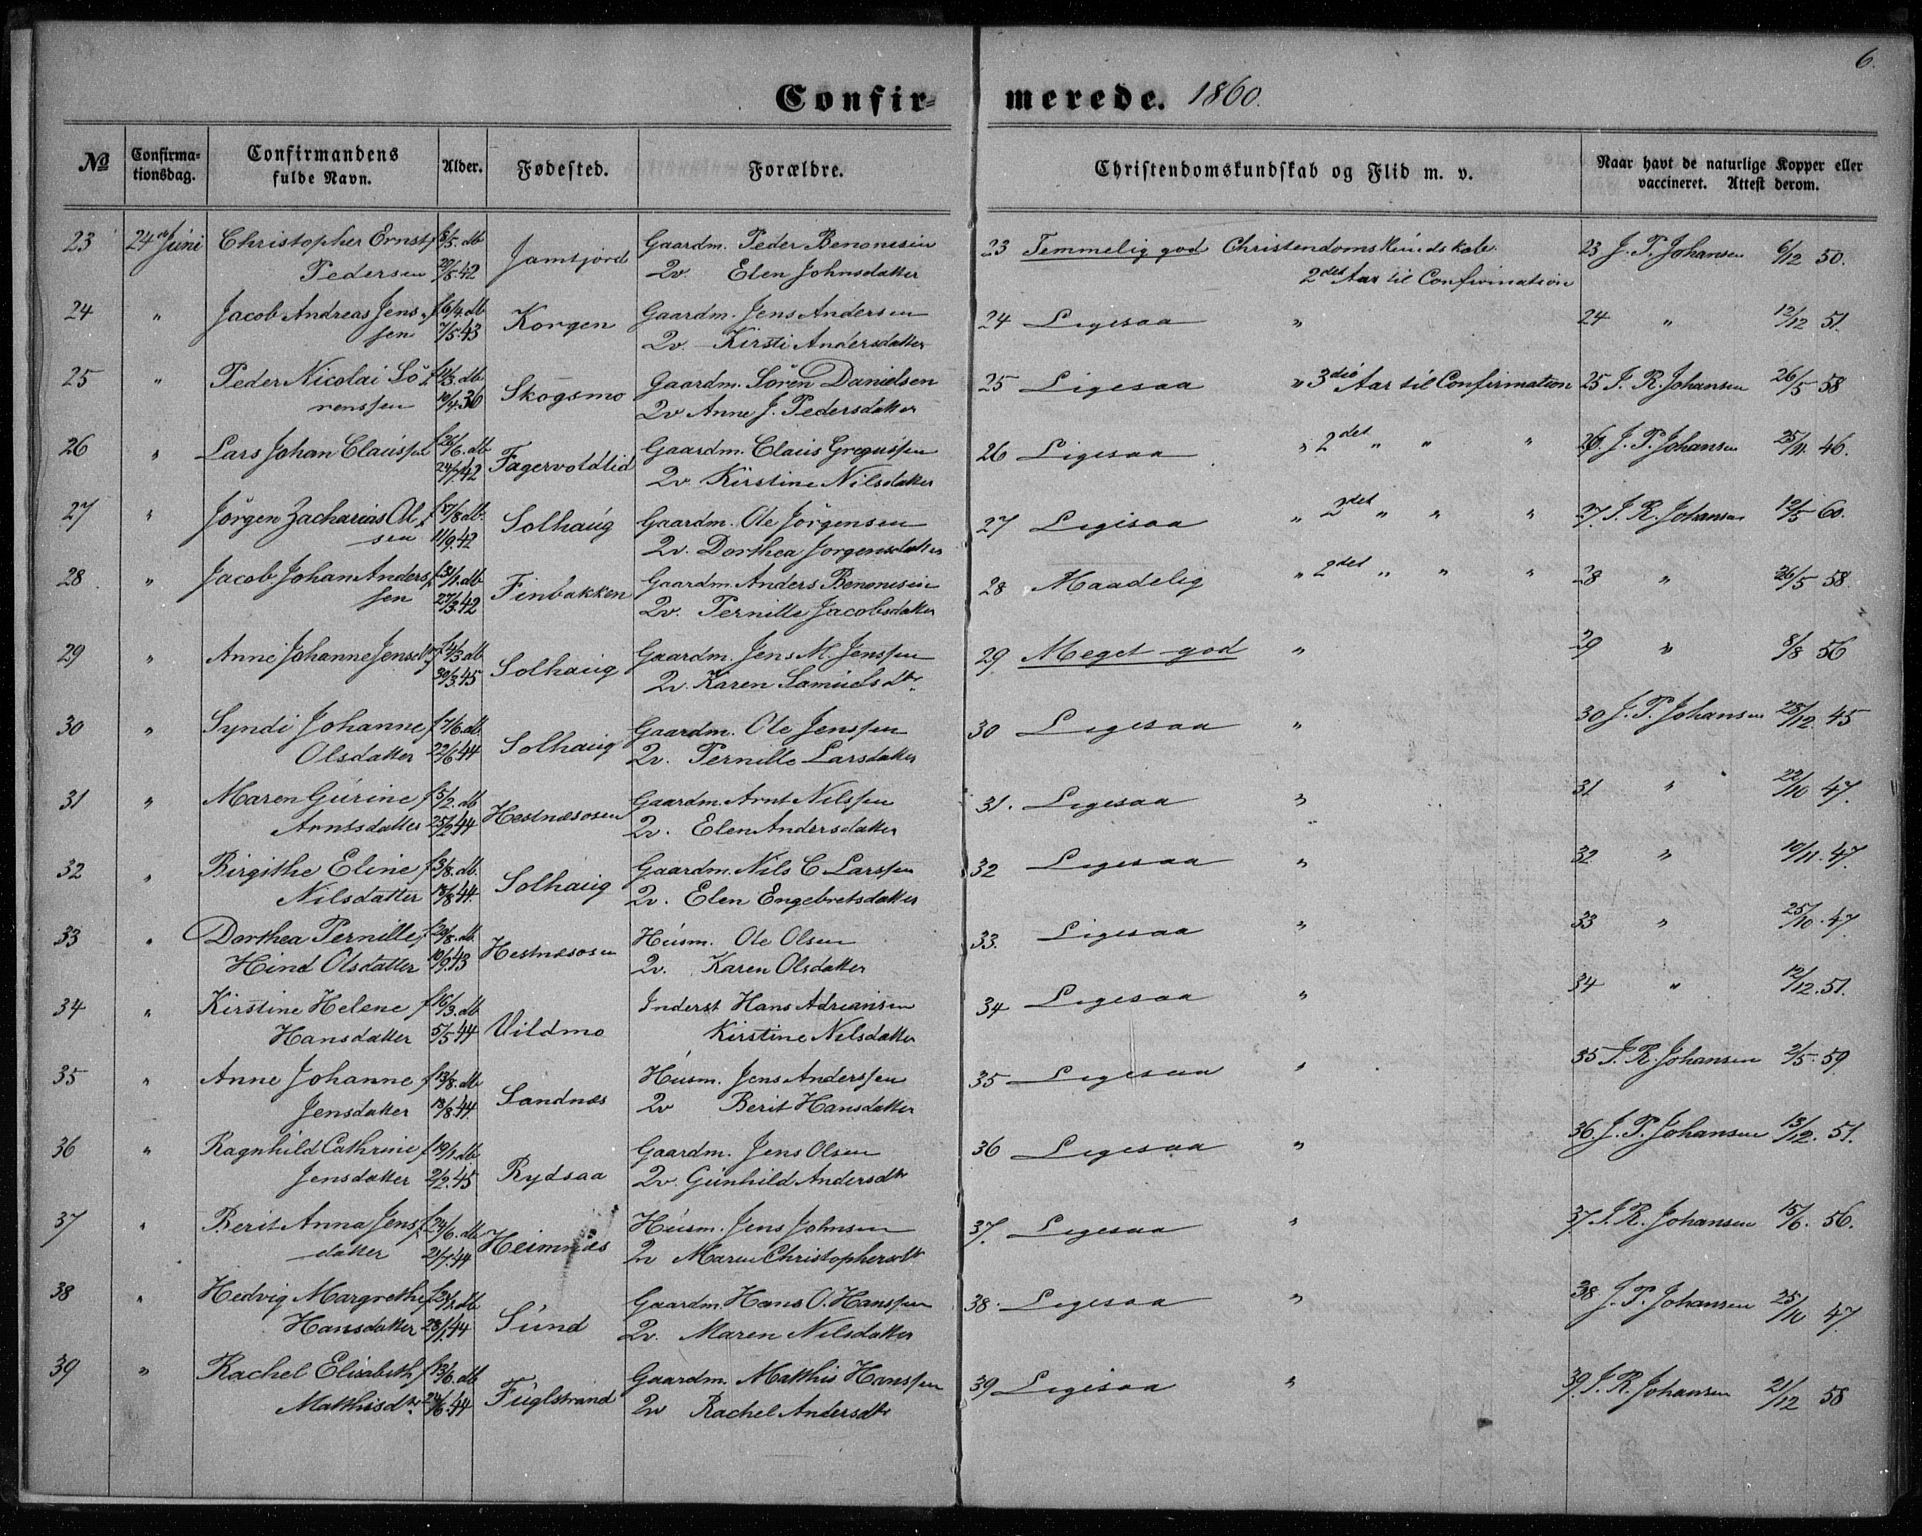 6.
Confirmerede. 1860.
No Confirmationsdag. Confirmandens fulde Navn. Alder. Fødested. Forældre. Christendomskundskab og Flid m. v. Naar havt de naturlige Kopper eller vaccineret. Attest derom.
23 24de Juni Christopher Ernst f 8/5. db Jamtjord Gaardm. Peder Benonisen 23 Temmelig god Christendomskundskab. 23 J. P. Johansen 6/12 50.
Pedersen 29/5 42 Qv Elen Johnsdatter 2det Aar til Confirmation
24 " Jacob Andreas Jens f 6/4. db Korgen Gaardm. Jens Andersen 24 Ligesaa " 24 " 12/12 51.
sen 7/5.43 Qv. Kirsti Andersdatter
25 " Peder Nicolai Sö f 11/3. db Skogsmo Gaardm. Sören Danielsen 25 Ligesaa " 3die Aar til Confirmation 25 J. R. Johansen 26/5 58
renssen 10/4.36 Qv Anne J. Pedersdatter
26 " Lars Johan Claussen f 26/6. db Fagervoldlid Gaardm. Claus Gregussen 26 Ligesaa " 2det " " " 26 J. P. Johansen 25/11 46.
24/7.42 Qv Kirstine Nilsdatter
27 " Jörgen Zacharias Ol f 17/8 db. Solhaug Gaardm. Ole Jörgensen 27 Ligesaa " 2det " " " 27. J. R. Johansen 12/5 60.
sen 11/9.42 Qv. Dorthea Jörgensdatter
28 " Jacob Johan Anders f 31/1. db Finbakken Gaardm. Anders Benonisen 28 Maadelig " 2det " " " 28 " 26/5 58.
sen 27/3.42 Qv. Pernille Jacobsdatter
29 " Anne Johanne Jensdtr f 4/3 db Solhaug Gaardm. Jens M. Jenssen 29. Meget god " 29 " 8/8 56
30/3.45 Qv. Karen Samuelsdtr.
30 " Syndi Johanne f 7/6. db. Solhaug Gaardm. Ole Jenssen 30 Ligesaa " 30 J. P. Johansen 28/12. 45
Olsdatter 22/6 44 Qv. Pernille Larsdatter
31 " Maren Gurine f 5/2. db Hestnæsosen Gaardm. Arnt Nilssen 31. Ligesaa " 31 " 22/10 47.
Arntsdatter 25/2 44 Qv. Elen Andersdatter
32 " Birgithe Eline f 3/8. db. Solhaug Gaardm. Nils C Larssen 32 Ligesaa " 32 " 10/11. 47.
Nilsdatter 18/8 44. Qv. Elen Engebretsdatter
33 " Dorthea Pernille f 20/8. db. Hestnæsosen Husm. Ole Olsen 33. Ligesaa " 33 " 25/10. 47.
Hind Olsdatter 10/9.43 Qv. Karen Olsdatter
34 " Kirstine Helene f 16/3. db Vildmo Inderst Hans Adriansen 34 Ligesaa " 34 " 12/12. 51.
Hansdatter 5/5 44 Kirstine Nilsdatter
35 " Anne Johanne f 13/8. db Sandnæs Husm. Jens Anderssen 35 Ligesaa " 35 J. R. Johansen 2/5. 59.
Jensdatter 18/8 44. Qv Berit Hansdatter
36 " Ragnhild Cathrine f 19/1. db Rydsaa Gaardm. Jens Olsen 36 Ligesaa " 36. J. P. Johansen 13/12. 51.
Jensdatter 2/2.45 Qv. Gunhild Andersdtr
37 " Berit Anna Jens f 24/6. db. Heimnæs Husm. Jens Johnsen 37. Ligesaa " 37. J. R. Johansen 15/6. 56.
datter 21/7.44 Qv Maren Christophersdtr
38 " Hedvig Margrethe f 21/1. db Sund Gaardm. Hans O. Hanssen 38. Ligesaa " 38 J. P. Johansen 25/10 47.
Hansdatter 28/1. 44 Qv. Maren Nilsdatter
39 " Rachel Elisabeth f 13/6. db. Fuglstrand Gaardm. Matthis Hanssen 39 Ligesaa " 39. J. R. Johansen 21/12 58
Matthisdtr 24/6.44 Qv Rachel Andersdtr